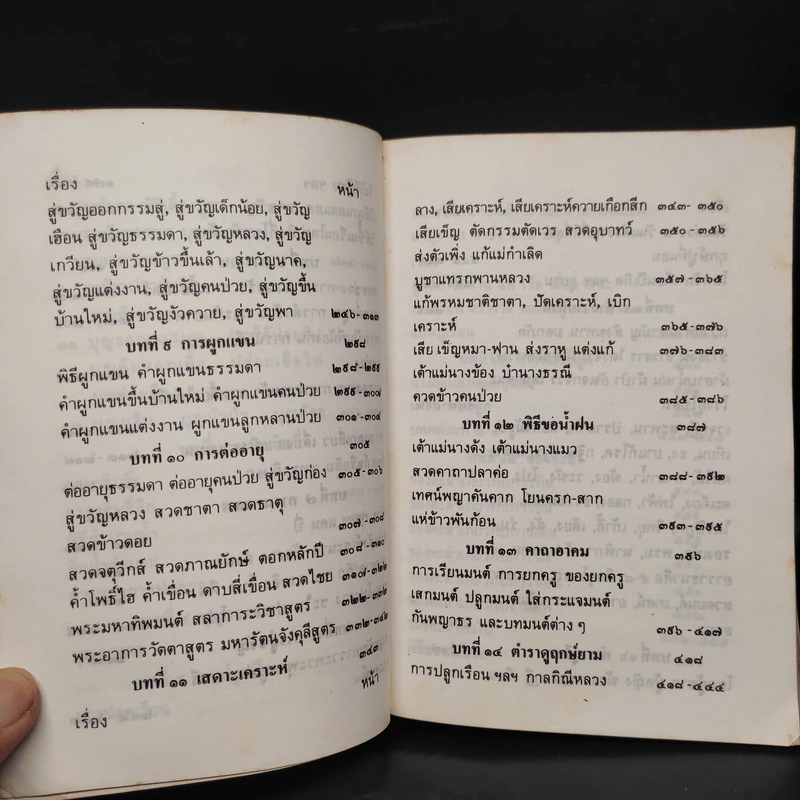 เรื่อง หน้า
สู่ขวัญออกกรรมสู่, สู่ขวัญเด็กน้อย, สู่ขวัญ
เฮือน สู่ขวัญธรรมดา, สู่ขวัญหลวง, สู่ขวัญ
เกวียน, สู่ขวัญข้าวขึ้นเล้า, สู่ขวัญนาค,
สู่ขวัญแต่งงาน, สู่ขวัญคนป่วย, สู่ขวัญขึ้น
บ้านใหม่, สู่ขวัญงัวควาย, สู่ขวัญพา ๒๔๖-๓๑๓
บทที่ ๙ การผูกแขน ๒๙๘
พิธีผูกแขน คำผูกแขนธรรมดา ๒๙๘-๒๙๙
คำผูกแขนขึ้นบ้านใหม่ คำผูกแขนคนป่วย ๒๙๙-๓๐๑
คำผูกแขนแต่งงาน ผูกแขนลูกหลานป่วย ๓๐๑-๓๐๔
บทที่ ๑๐ การต่ออายุ ๓๐๕
ต่ออายุธรรมดา ต่ออายุคนป่วย สู่ขวัญก่อง ๓๐๕-๓๐๖
สู่ขวัญหลวง สวดชาตา สวดธาตุ
สวดข้าวดอย ๓๐๗-๓๐๘
สวดจตุวีกส์ สวดภาณยักษ์ ตอกหลักปี ๓๐๘-๓๑๐
ค้ำโพธิ์ไฮ ค้ำเขื่อน ดาบสี่เขื่อน สวดไชย ๓๑๐-๓๒๒
พระมหาทิพมนต์ สลาการะวิชาสูตร ๓๒๒-๓๓๒
พระอาการวัตตาสูตร มหารัตนจังคุลีสูตร ๓๓๒-๓๔๒
บทที่ ๑๑ เสดาะเคราะห์ ๓๔๓
เรื่อง หน้า
ลาง, เสียเคราะห์, เสียเคราะห์ควายเกือกสึก ๓๔๓-๓๕๐
เสียเข็ญ ตัดกรรมตัดเวร สวดอุบาทว์ ๓๕๐-๓๕๖
ส่งตัวเพิ่ง แก้แม่กำเลิด
บูชาแทรกพานหลวง ๓๕๗-๓๖๕
แก้พรหมชาติชาตา, ปัดเคราะห์, เบิก
เคราะห์ ๓๖๕-๓๗๖
เสีย เข็ญหมา-ฟาน ส่งราหู แต่งแก้ ๓๗๖-๓๘๓
เต้าแม่นางข้อง บ๋านางธรณี
ควดข้าวคนป่วย ๓๘๕-๓๘๖
บทที่ ๑๒ พิธีขอน้ำฝน ๓๘๗
เต้าแม่นางด้ง เต้าแม่นางแมว
สวดคาถาปลาค่อ ๓๘๘-๓๙๒
เทศน์พญาคันคาก โยนครก-สาก
แห่ข้าวพันก้อน ๓๙๓-๓๙๕
บทที่ ๑๓ คาถาอาคม ๓๙๖
การเรียนมนต์ การยกครู ของยกครู
เสกมนต์ ปลูกมนต์ ใส่กระแจมนต์
กันพญาธร และบทมนต์ต่าง ๆ ๓๙๖-๔๑๗
บทที่ ๑๔ ตำราดูฤกษ์ยาม ๔๑๘
การปลูกเรือน ฯลฯ กาลกิณีหลวง ๔๑๘-๔๔๔